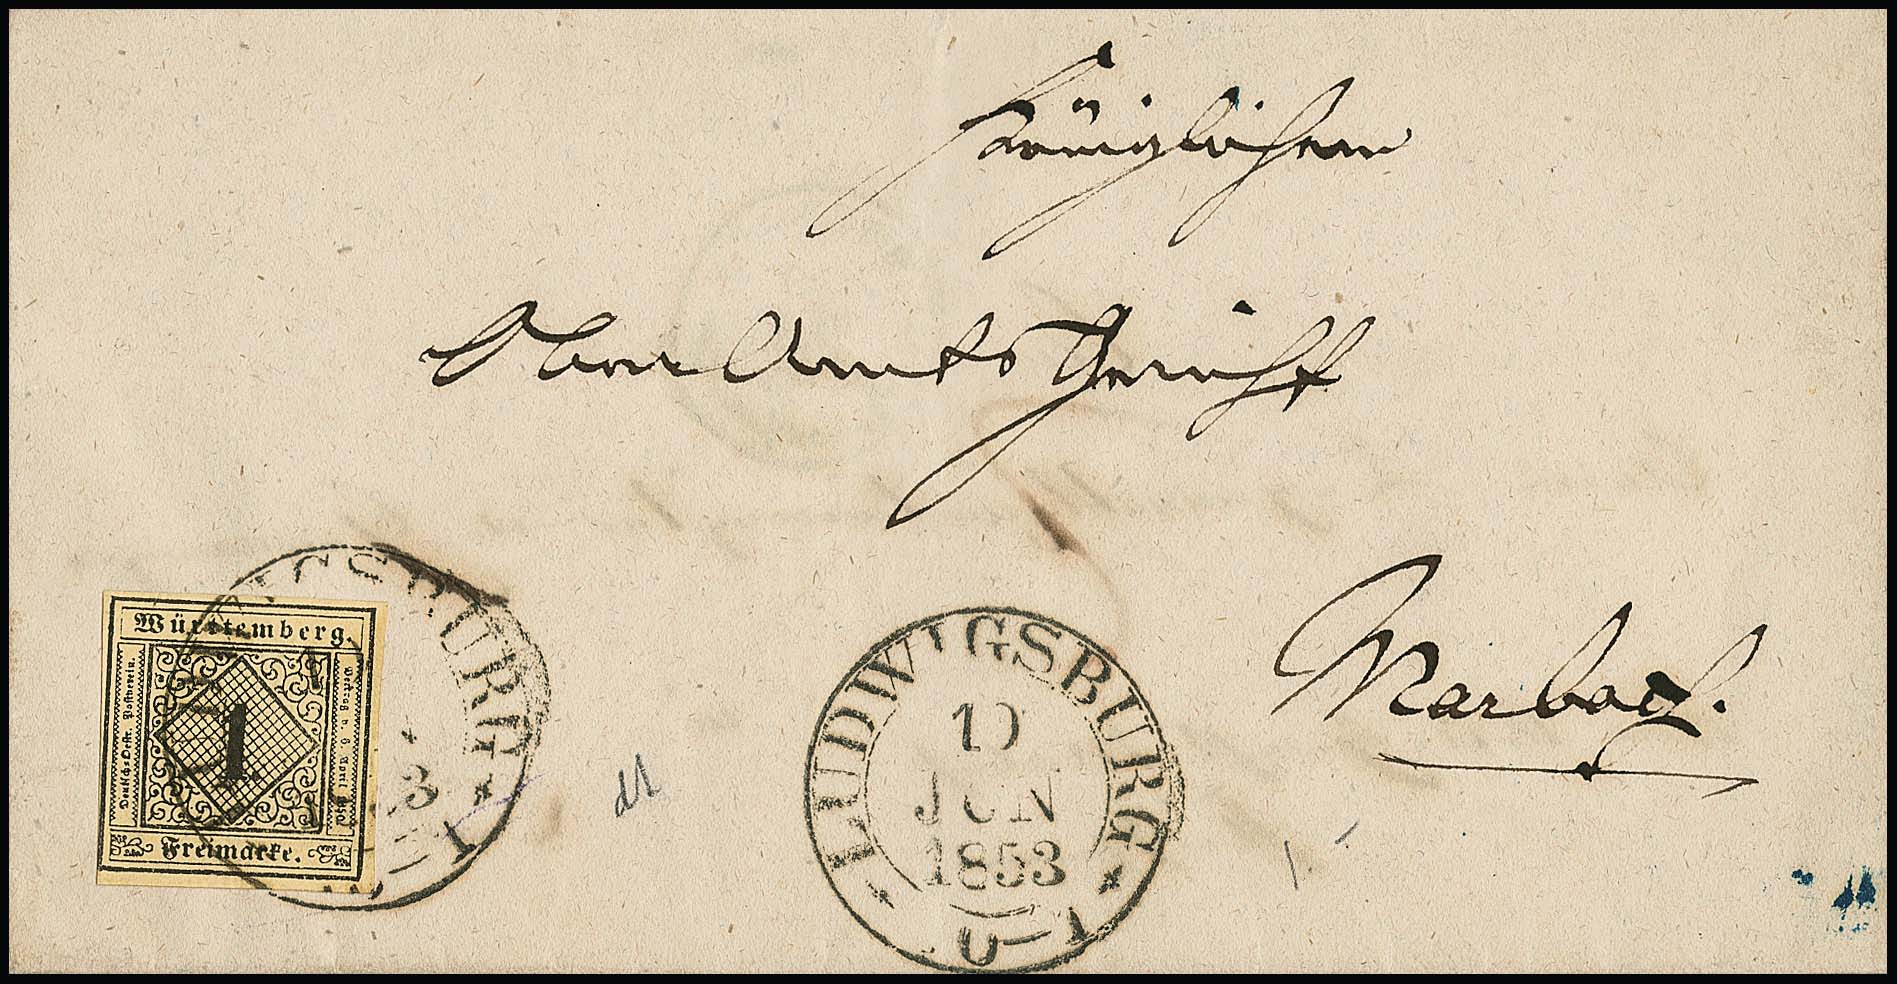 Königlichem
OberAmtsGericht
Marbach.
Württemberg.
Deutsch-Oestr. Postverein.
1
Vertrag v. 6. April 1850
Freimarke.
LUDWIGSBURG
1853
LUDWIGSBURG
JUN
1853